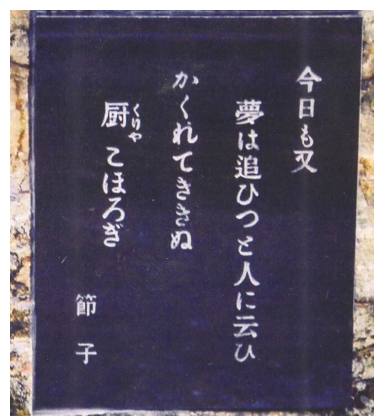 今日も又
夢は追ひつと人に云ひ
かくれてききぬ
厨こほろぎ
くりや
節子